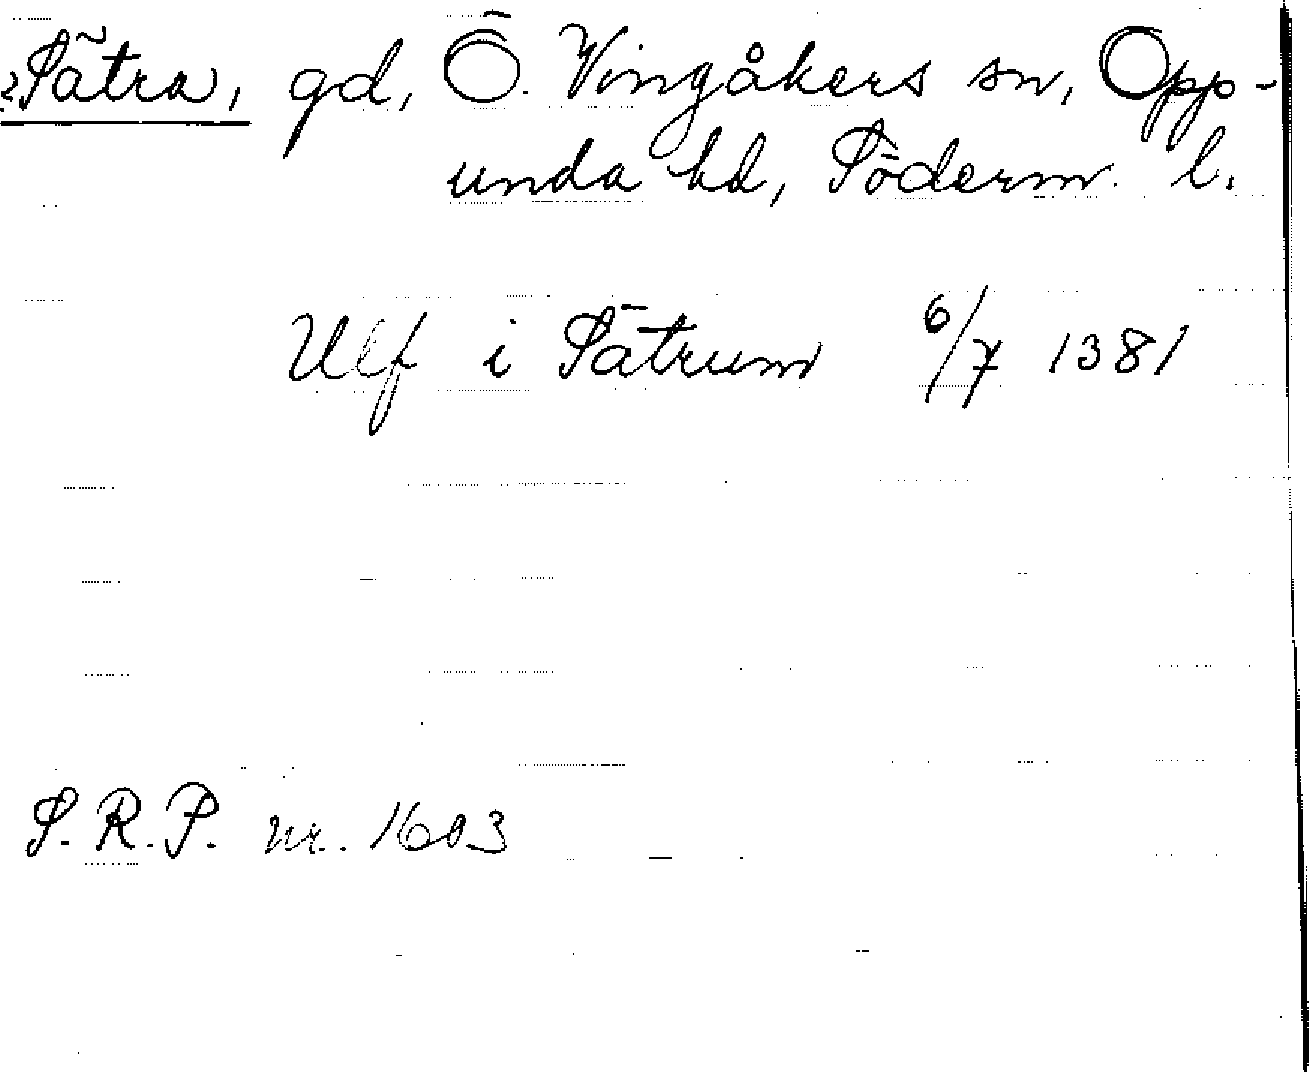 Sätra, gd, Ö. Vingåkers sn, Opp-
unda hd, Söderm. l.
Ulf i Sätrum 6/7 1381
S.R.P. nr. 1603